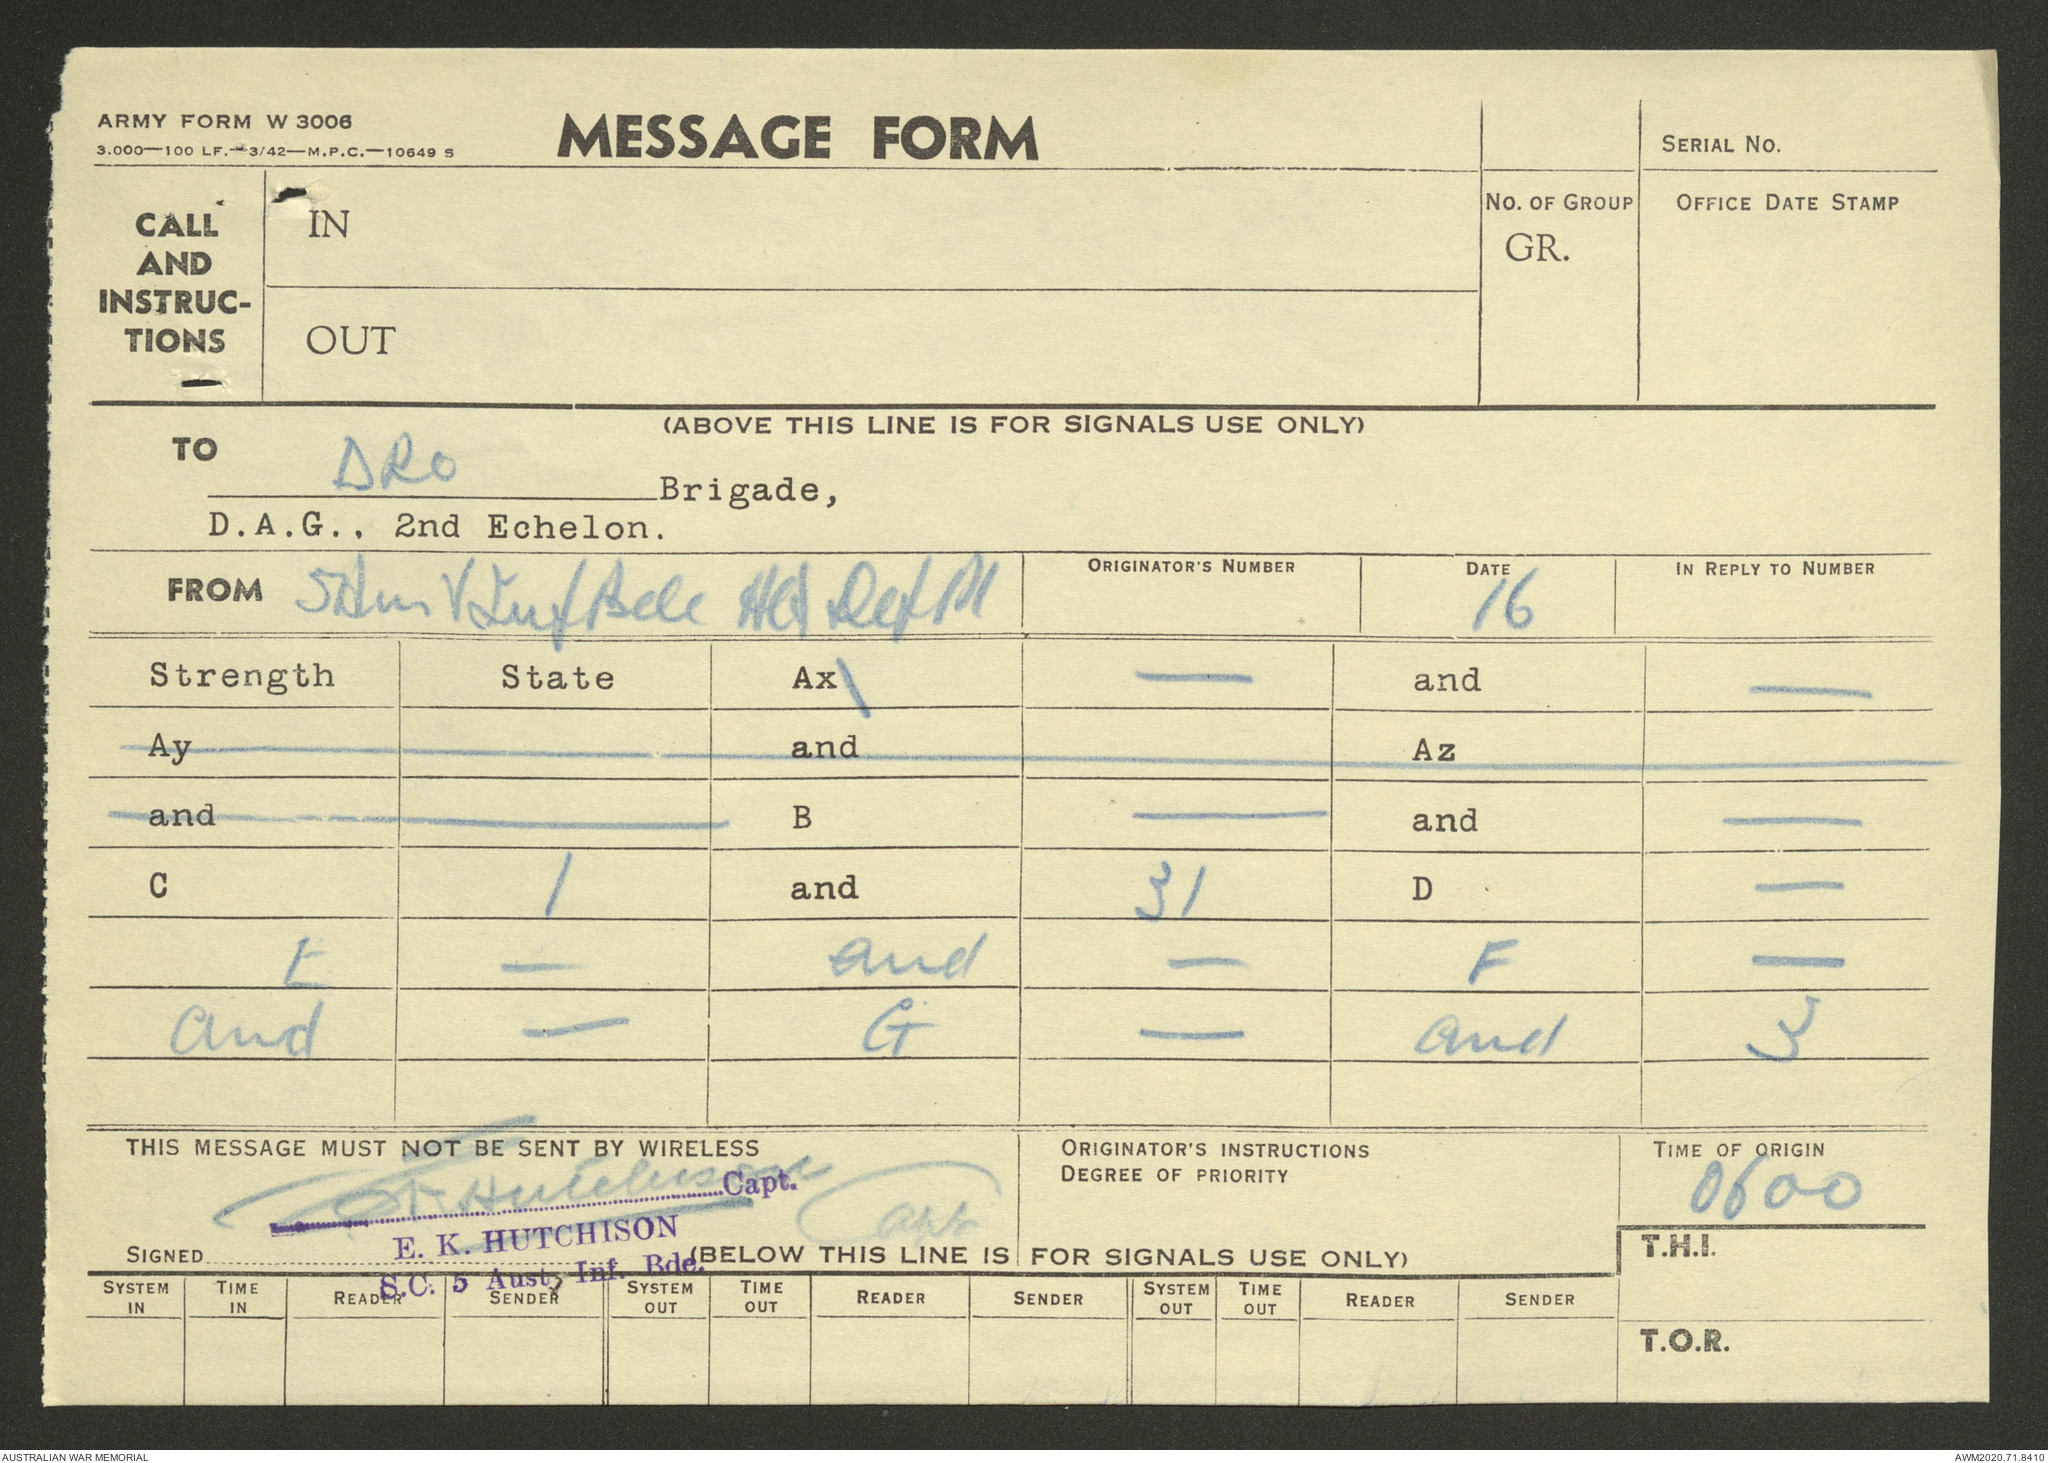 ARMY FORM W 3006
3.000—100 LF.—3/42—M.P.C.—10649 S
MESSAGE FORM
SERIAL NO.
CALL AND INSTRUC-TIONS
IN
OUT
NO. OF GROUP
GR.
OFFICE DATE STAMP
(ABOVE THIS LINE IS FOR SIGNALS USE ONLY)
TO
DRO Brigade,
D.A.G., 2nd Echelon.
FROM Inf Bde HQ Def Pl
ORIGINATOR'S NUMBER
DATE
16
IN REPLY TO NUMBER
Strength State Ax \ — and —
Ay and Az
and B — and —
C 1 and 31 D —
E — and — F —
and — G — and 3
THIS MESSAGE MUST NOT BE SENT BY WIRELESS
ORIGINATOR'S INSTRUCTIONS
DEGREE OF PRIORITY
TIME OF ORIGIN
0600
Hutchison Capt
Capt.
E. K. HUTCHISON
S.C. 5 Aust. Inf. Bde.
SIGNED
(BELOW THIS LINE IS FOR SIGNALS USE ONLY)
T.H.I.
SYSTEM IN TIME IN READER SENDER SYSTEM OUT TIME OUT READER SENDER SYSTEM OUT TIME OUT READER SENDER
T.O.R.
AUSTRALIAN WAR MEMORIAL
AWM2020.71.8410